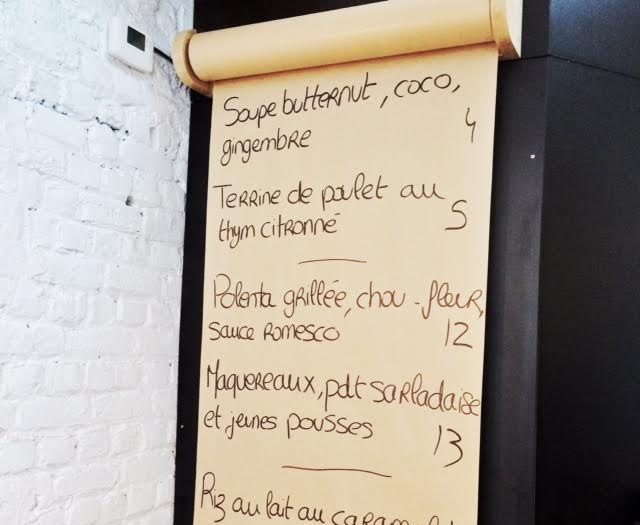 Soupe butternut, coco,
gingembre 4
Terrine de poulet au
thym citronné 5
Polenta grillée, chou-fleur,
sauce romesco 12
Maquereaux, pdt sarladaise
et jeunes pousses 13
Riz au lait au